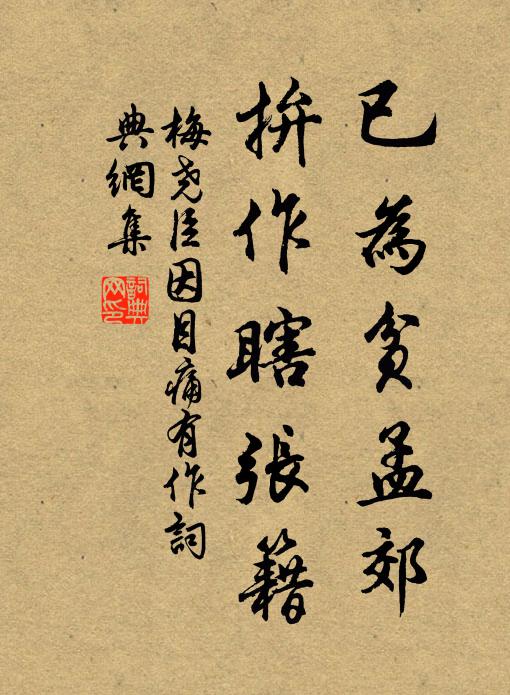 已為貧孟郊
拚作瞎張籍
梅堯臣因目痛有作詞
典網集
詞典網印